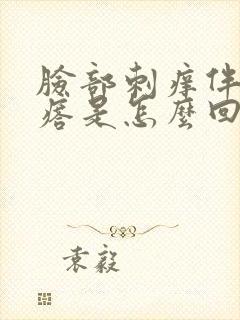 臉部刺癢伴
痞是怎麼回
袁毅